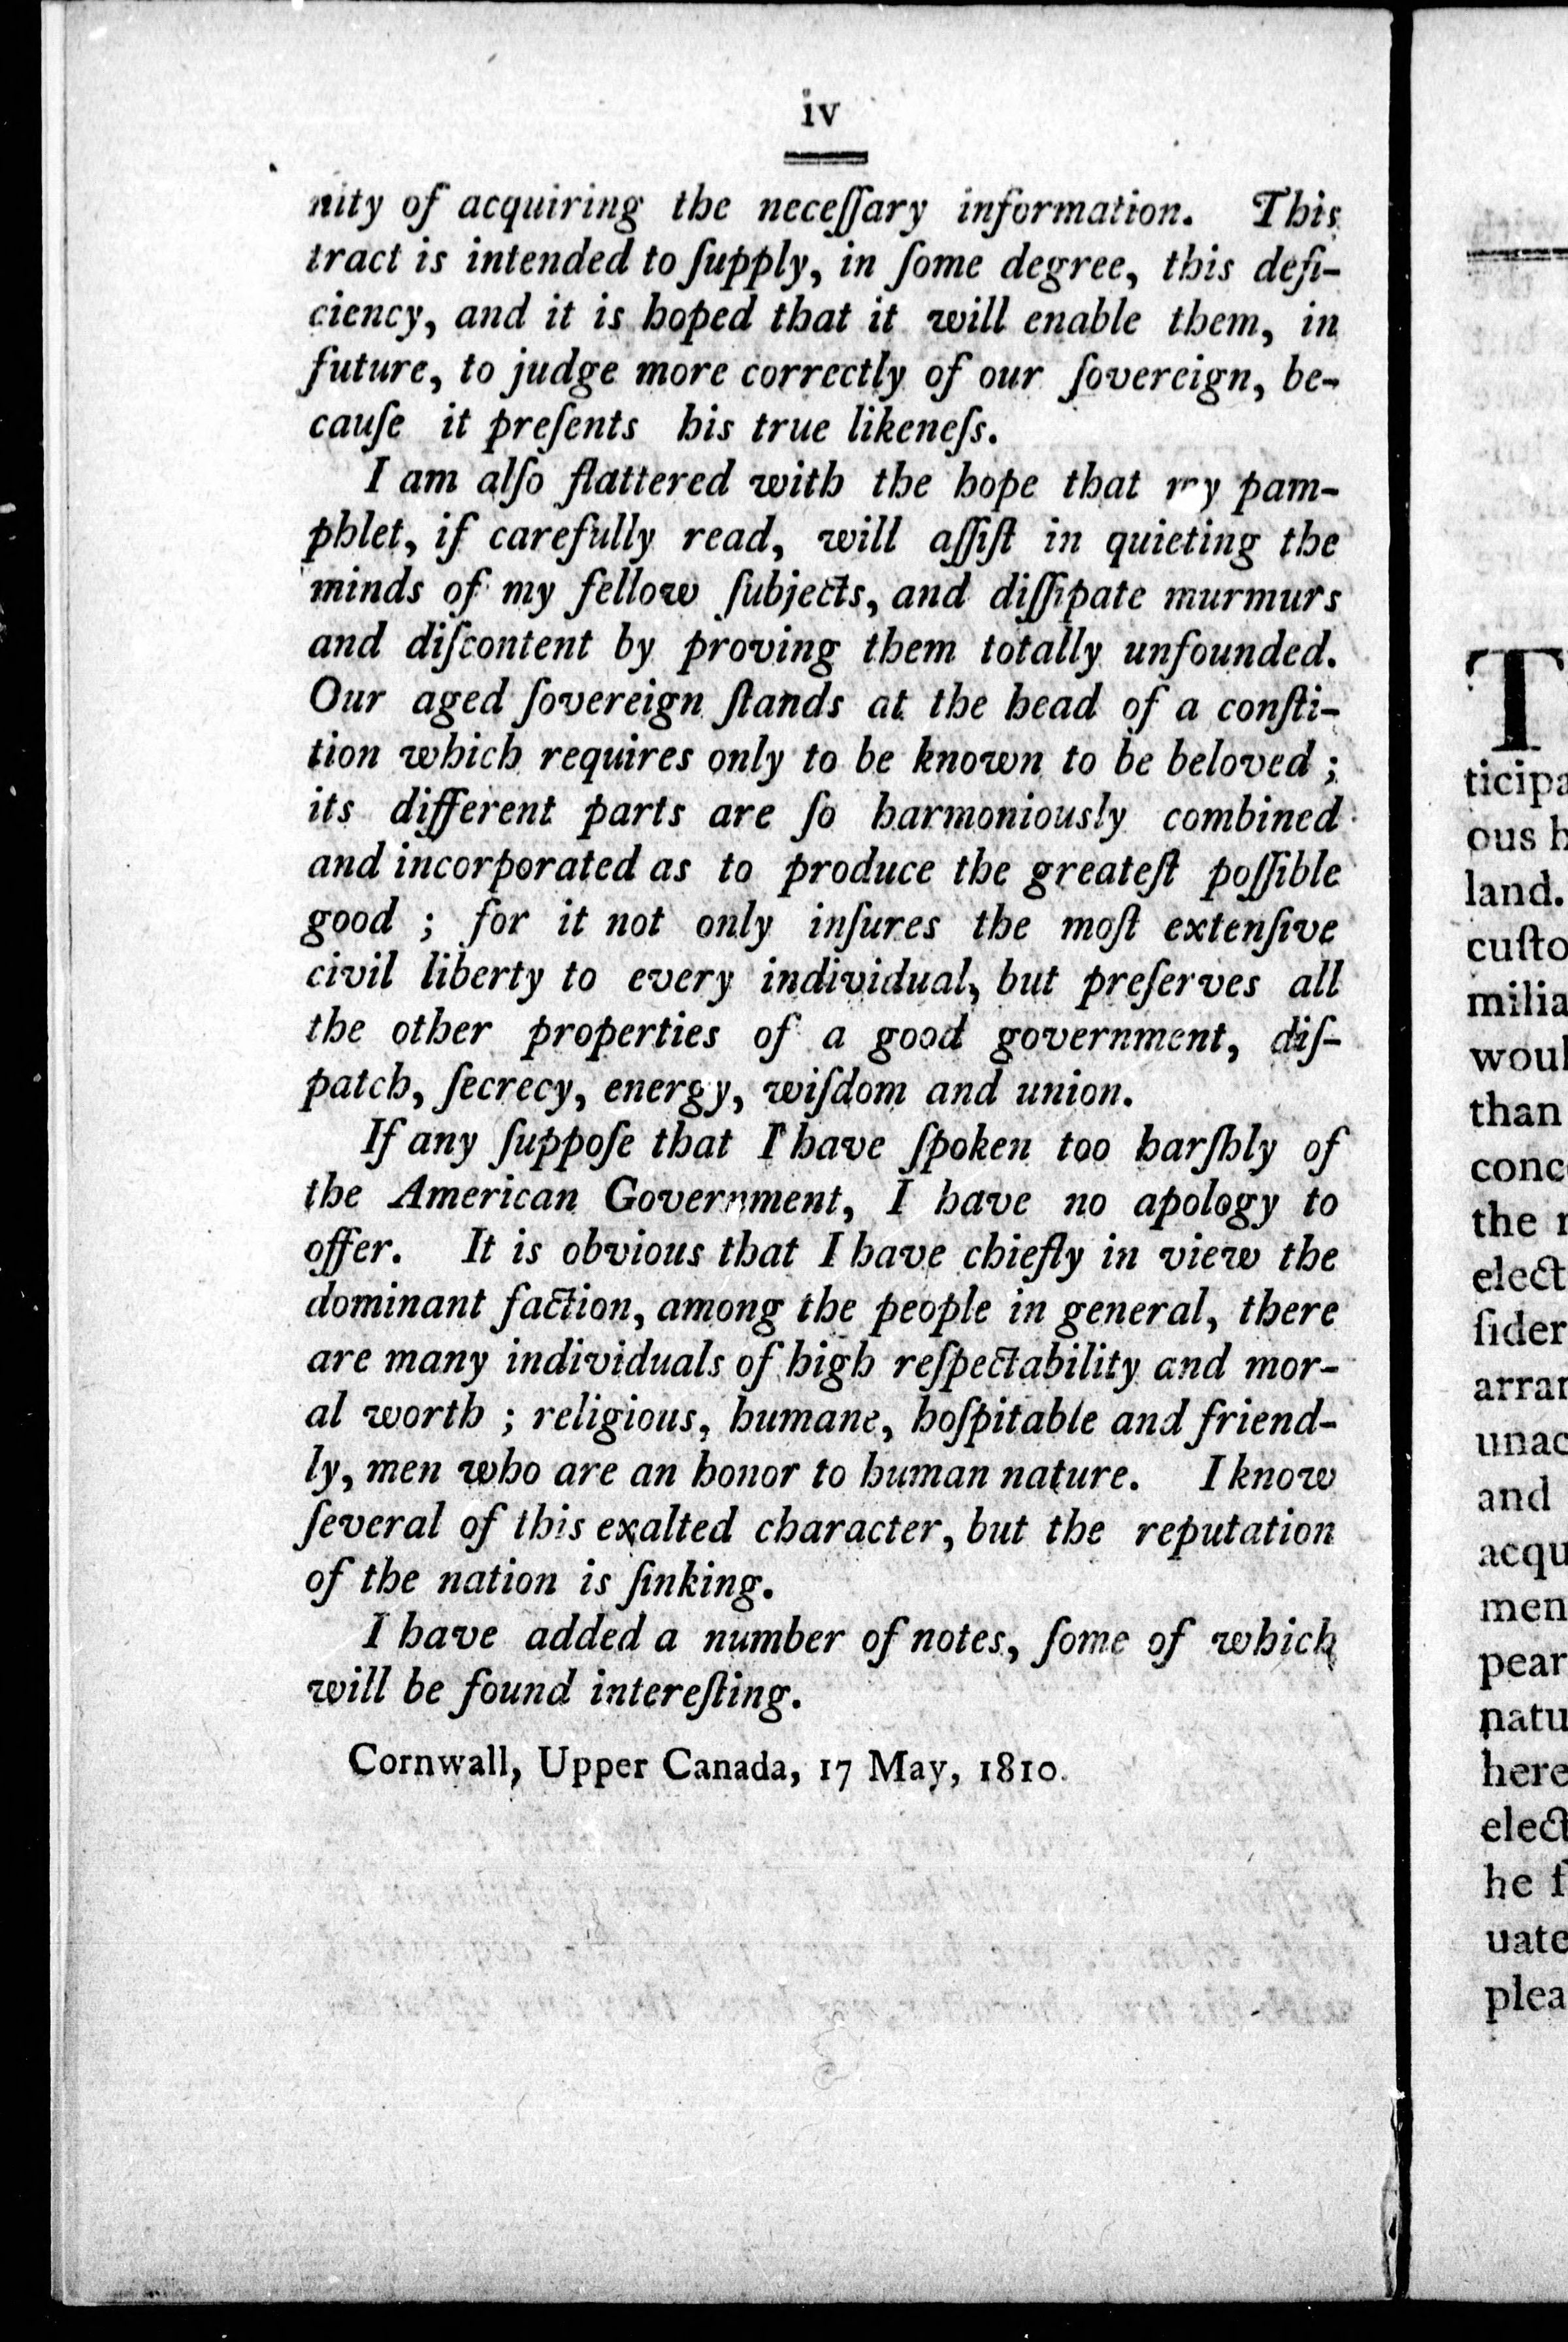 iv
nity of acquiring the neceſſary information. This
tract is intended to ſupply, in ſome degree, this defi-
ciency, and it is hoped that it will enable them, in
future, to judge more correctly of our ſovereign, be-
cauſe it preſents his true likeneſs.
I am alſo flattered with the hope that my pam-
phlet, if carefully read, will aſſiſt in quieting the
minds of my fellow ſubjects, and diſſipate murmurs
and diſcontent by proving them totally unfounded.
Our aged ſovereign ſtands at the head of a conſti-
tion which requires only to be known to be beloved ;
its different parts are ſo harmoniously combined
and incorporated as to produce the greateſt poſſible
good ; for it not only inſures the moſt extenſive
civil liberty to every individual, but preſerves all
the other properties of a good government, diſ-
patch, ſecrecy, energy, wiſdom and union.
If any ſuppoſe that I have ſpoken too harſhly of
the American Government, I have no apology to
offer. It is obvious that I have chiefly in view the
dominant faction, among the people in general, there
are many individuals of high reſpectability and mor-
al worth ; religious, humane, hoſpitable and friend-
ly, men who are an honor to human nature. I know
ſeveral of this exalted character, but the reputation
of the nation is ſinking.
I have added a number of notes, ſome of which
will be found intereſting.
Cornwall, Upper Canada, 17 May, 1810.
T
ticipa
ous h
land.
cuſto
milia
woul
than
conc
the r
elect
ſider
arran
unac
and
acqu
men
pear
natu
here
elect
he ſ
uate
plea